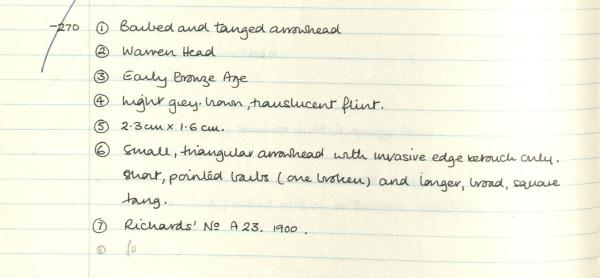 -270 ① Barbed and tanged arrowhead
② Warren Head
③ Early Bronze Age
④ Light grey-brown, translucent flint.
⑤ 2.3cm x 1.6cm.
⑥ Small, triangular arrowhead with invasive edge retouch only.
Short, pointed barbs (one broken) and longer, broad, square
tang.
⑦ Richards' No A 23. 1900.
⑧